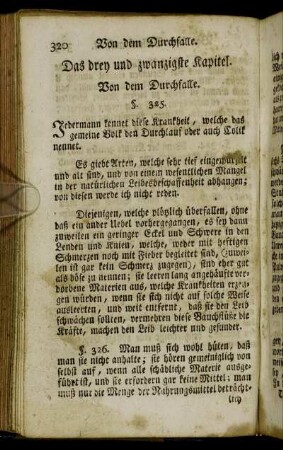 320 Von dem Durchfalle.
Das drey und zwanzigste Kapitel.
Von dem Durchfalle.
§. 325.
Jedermann kennet diese Krankheit, welche das
gemeine Volk den Durchlauf oder auch Colik
nennet.
Es giebt Arten, welche sehr tief eingewurzelt
und alt sind, und von einem wesentlichen Mangel
in der natürlichen Leibesbeschaffenheit abhangen;
von diesen werde ich nicht reden.
Diejenigen, welche plötzlich überfallen, ohne
daß ein ander Uebel vorhergegangen, es sey dann
zuweilen ein geringer Eckel und Schwere in den
Lenden und Knien, welche, weder mit heftigen
Schmerzen noch mit Fieber begleitet sind, (zuwei-
len ist gar kein Schmerz zugegen), sind eher gut
als böse zu nennen; sie leeren lang angehäufte ver-
dorbene Materien aus, welche Krankheiten erzeu-
gen würden, wenn sie sich nicht auf solche Weise
ausleerten, und weit entfernt, daß sie den Leib
schwächen sollten, vermehren diese Bauchflüße die
Kräfte, machen den Leib leichter und gesunder.
§. 326. Man muß sich wohl hüten, daß
man sie nicht anhalte; sie hören gemeiniglich von
selbst auf, wenn alle schädliche Materie ausge-
führt ist, und sie erfordern gar keine Mittel; man
muß nur die Menge der Nahrungsmittel beträcht-
lich